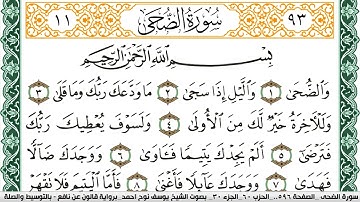 ٩٣ سُورَةُ الضُّحَىٰ ١١
بِسْمِ اللَّهِ الرَّحْمَٰنِ الرَّحِيمِ
وَالضُّحَىٰ ١ وَالَّيْلِ إِذَا سَجَىٰ ٢ مَا وَدَّعَكَ رَبُّكَ وَمَا قَلَىٰ ٣
وَلَلْأَخِرَةُ خَيْرٌ لَّكَ مِنَ الْأُولَىٰ ٤ وَلَسَوْفَ يُعْطِيكَ رَبُّكَ
فَتَرْضَىٰ ٥ أَلَمْ يَجِدْكَ يَتِيمًا فَـَٔاوَىٰ ٦ وَوَجَدَكَ ضَآلًّا
فَهَدَىٰ ٧ وَوَجَدَكَ عَآئِلًا فَأَغْنَىٰ ٨ فَأَمَّا الْيَتِيمَ فَلَا تَقْهَرْ
سورة الضحى .الصفحة ٥٩٦. الحزب ٦٠. الجزء ٣٠ . بصوت الشيخ يوسف نوح احمد .برواية قالون عن نافع - بالتوسيط والصلة